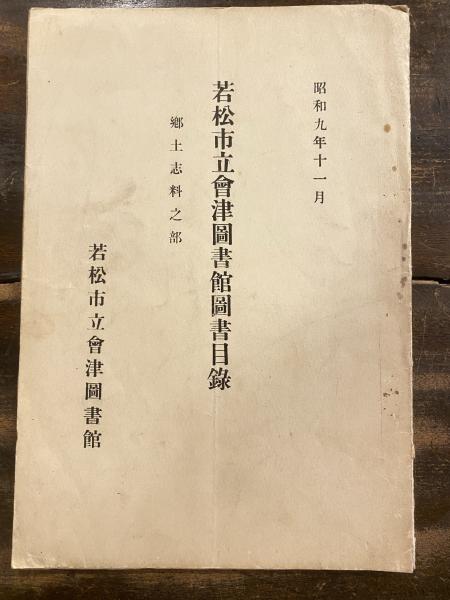 昭和九年十一月
若松市立會津圖書館圖書目錄
鄕土志料之部
若松市立會津圖書館